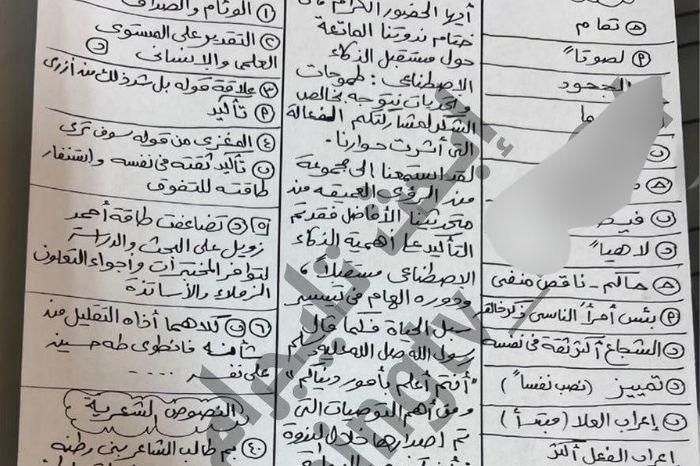 ① الوئام والصداقة
② التقدير على المستوى
العلمي والإنساني
③ علاقة قوله بل شد ذلك من أزرى
تأكيد
④ المغزى من قوله سوف ترى
تأكيد ثقته في نفسه واستنفار
طاقته للتفوق
تضاعفت طاقة أحمد
زويل على البحث والدراسة
لتوافر المختبرات وأجواء التعاون
الزملاء والأساتذة
كلاهما أخاه التقليل من
شأنه فانطوى طه حسين
على نفسه ....
النصوص الشعرية
بم طالب الشاعر بنى وطنه
أيها الحضور الكرام في
ختام ندوتنا الماتعة
حول مستقبل الذكاء
الاصطناعى : طموحات
وتحديات نتوجه بخالص
الشكر لمشاركتكم الفعالة
التى أثرت حوارنا.
لقد استمعنا الى مجموعة
من الرؤى العميقة من
متحدثينا الأفاضل فقد تم
التأكيد على اهمية الذكاء
الاصطناعى مستقبلاً،
ودوره الهام فى تيسير
سبل الحياة فكما قال
رسول الله صل الله عليه وسلم
"أنتم أعلم بأمور دنياكم"
ومن أهم التوصيات التى
تم إصدارها خلال الندوة
تمام
لصوتاً
الجحود
لاهياً
حاكم - ناقص منفى
بئس أمرأ الناسى ذكر خالقه
الشجاع أكثر ثقة فى نفسه
تمييز (نصب نفساً)
إعراب العلا (مبتدأ)
إعراب الفعل أكثر